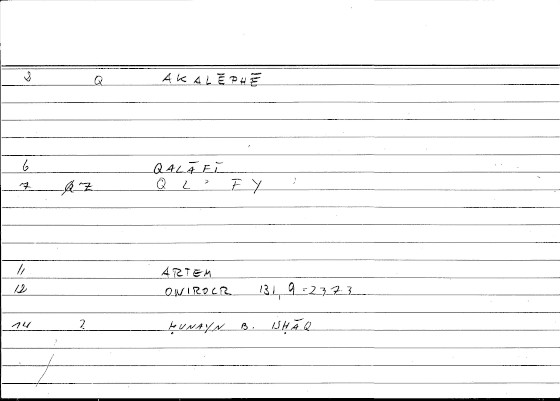 3 Q AKALĒPHĒ
6 QALĀFĪ
7 Q7 Q L : F Y :
11 ARTEM
12 ONIROCR 131, 9 = 237 3
14 2 ḤUNAYN B. ISḤĀQ